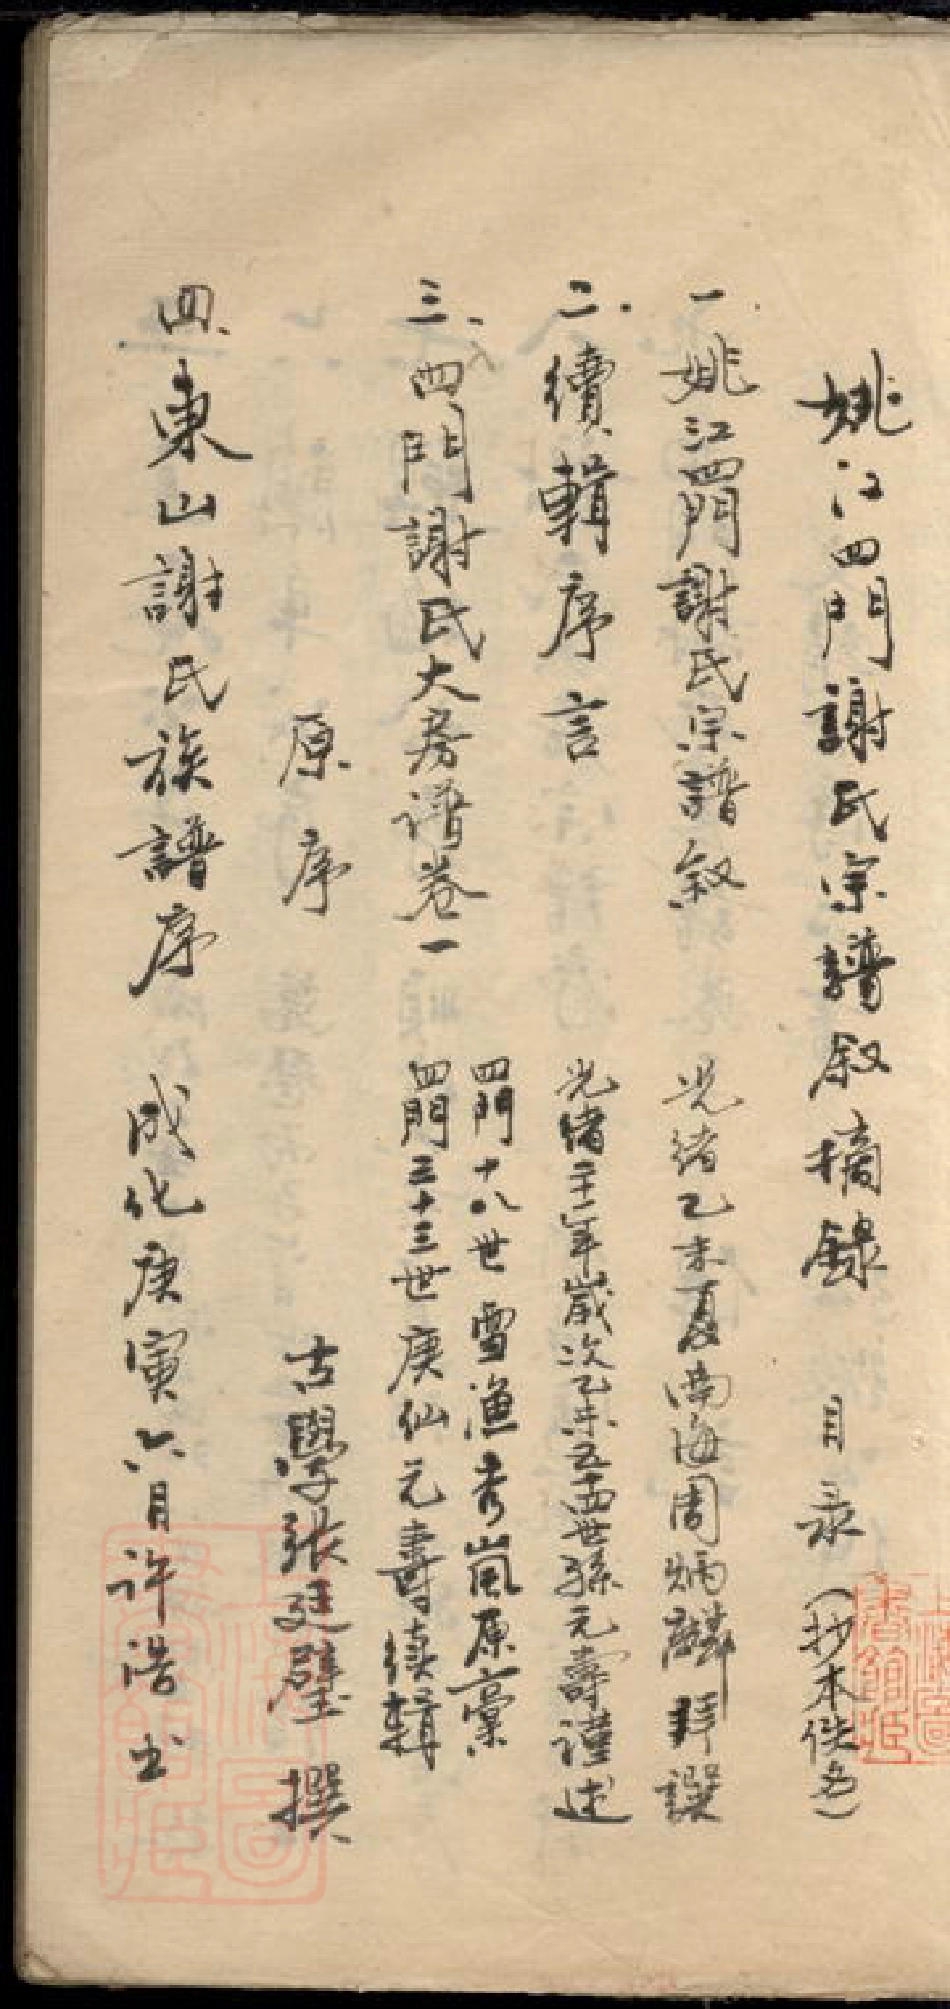 姚江四門謝氏宗譜叙摘録 目录（抄本佚名）
一.姚江四門謝氏宗譜叙 光緒乙未夏南海周炳麟拜譔
二.續輯序言 光緒二十一年歲次乙未五十四世孫元壽謹述
三、四門謝氏大房譜卷一
四門十八世雪漁秀嵐原稾
四門三十三世庚仙元壽续輯
原序 古學張廷璧撰
四、東山謝氏族譜序 成化庚寅六月許浩